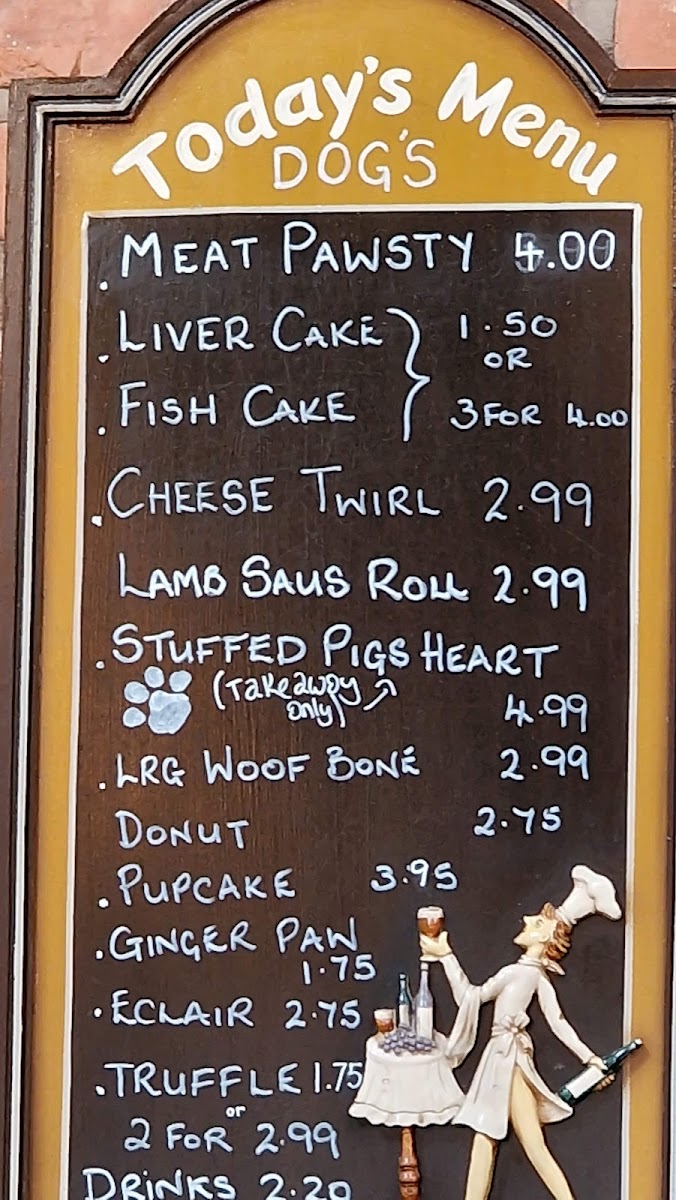 Today's Menu
DOG'S
. MEAT PAWSTY 4.00
. LIVER CAKE } 1.50
OR
. FISH CAKE 3 FOR 4.00
. CHEESE TWIRL 2.99
LAMB SAUS ROLL 2.99
. STUFFED PIGS HEART
(Takeaway
only)
4.99
. LRG WOOF BONE 2.99
DONUT 2.75
. PUPCAKE 3.95
. GINGER PAW
1.75
. ECLAIR 2.75
. TRUFFLE 1.75
or
2 FOR 2.99
DRINKS 2.20